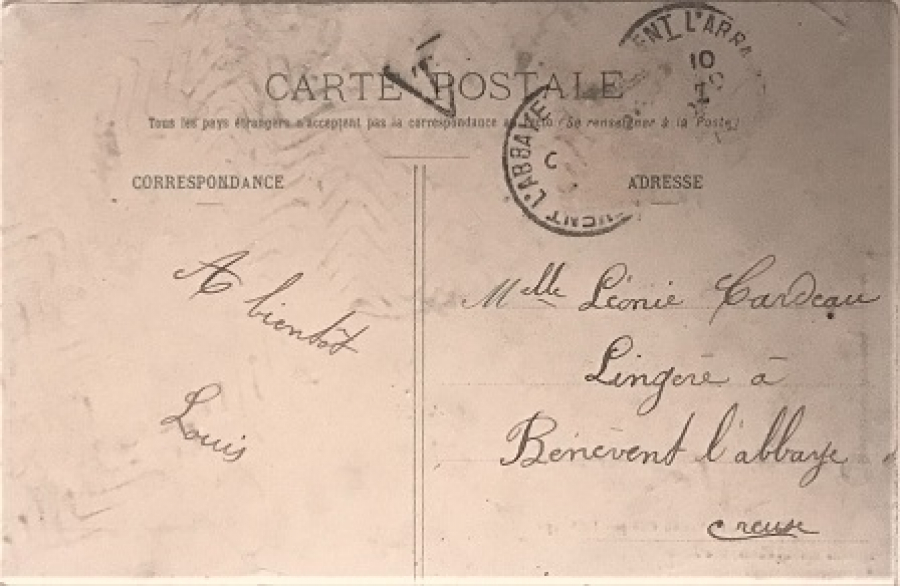 CARTE POSTALE
Tous les pays étrangers n'acceptent pas la correspondance au recto (Se renseigner à la Poste)
CORRESPONDANCE
ADRESSE
A bientôt
Louis
Melle Léonie Cardeau
Lingère à
Bénévent l'abbaye
Creuse
T
ENT L'ABBA
10
L'ABBAYE
C